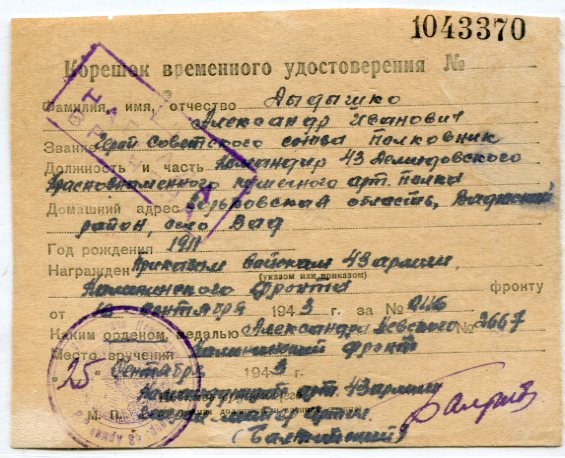 1043370
Корешок временного удостоверения №
Фамилия, имя, отчество
Александр Иванович
Звание Герой Советского союза Полковник
Должность и часть Командир 43 Демидовского
Краснознаменного пушечного арт. Полка
Домашний адрес Горьковская область, Вадский
район, село Вад
Год рождения 1911
Награжден Приказом войскам 43 армии,
(указом или приказом)
Калининского Фронта фронту
от сентября 1943 г. за №
Каким орденом, медалью Александра Невского № 2667
Место вручения Калининский фронт
"25" Сентября 1943 г.
Командующий арт. 43 армии
М. П. майор арт.